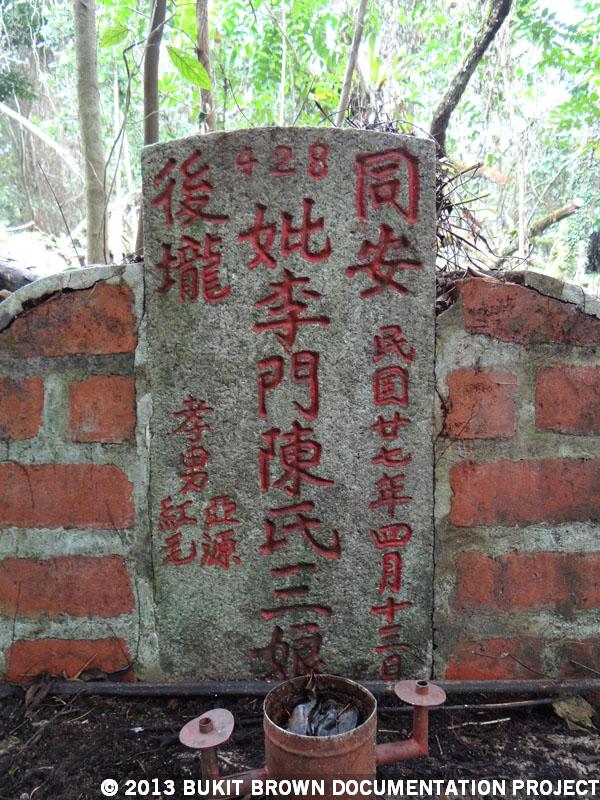 428
同安
後壠
民國廿七年四月十三日
妣李門陳氏三娘
孝男
亞源
紅毛
© 2013 BUKIT BROWN DOCUMENTATION PROJECT